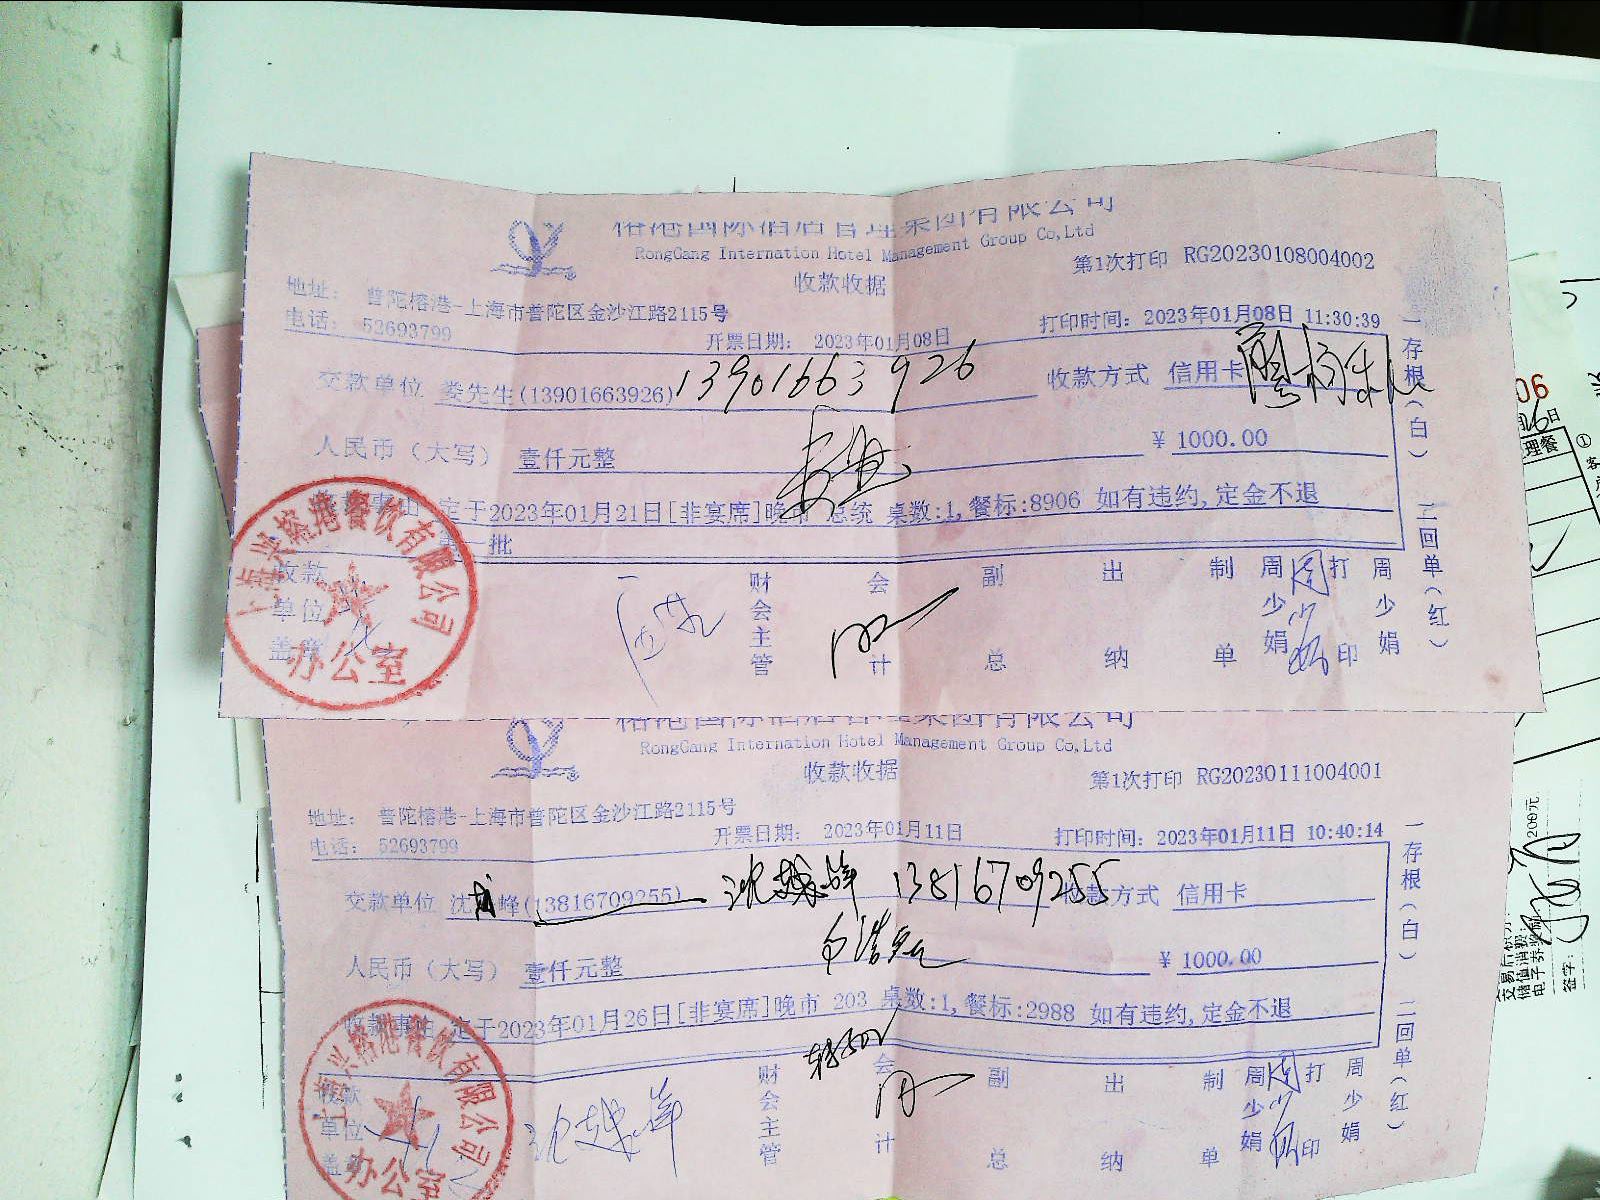 榕港国际酒店管理集团有限公司
RongGang Internation Hotel Management Group Co,Ltd
收款收据
第1次打印 RG20230108004002
地址： 普陀榕港-上海市普陀区金沙江路2115号
电话： 52693799
开票日期： 2023年01月08日
打印时间：2023年01月08日 11:30:39
交款单位 娄先生(13901663926) 13901663926
收款方式 信用卡
人民币（大写） 壹仟元整
¥ 1000.00
收款事由 定于2023年01月21日[非宴席]晚市 总统 桌数:1,餐标:8906 如有违约,定金不退
第一批
收款单位盖章
财会主管
会计
副总
出纳
制单 周少娟
打印 周少娟
一存根（白） 二回单（红）
上海兴榕港餐饮有限公司
办公室
榕港国际酒店管理集团有限公司
RongGang Internation Hotel Management Group Co,Ltd
收款收据
第1次打印 RG20230111004001
地址： 普陀榕港-上海市普陀区金沙江路2115号
电话： 52693799
开票日期： 2023年01月11日
打印时间：2023年01月11日 10:40:14
交款单位 沈越峰(13816709255) 沈越峰 13816709255
收款方式 信用卡
人民币（大写） 壹仟元整
¥ 1000.00
收款事由 定于2023年01月26日[非宴席]晚市 203 桌数:1,餐标:2988 如有违约,定金不退
收款单位盖章
沈越峰
财会主管
会计
副总
出纳
制单 周少娟
打印 周少娟
一存根（白） 二回单（红）
上海兴榕港餐饮有限公司
办公室
06
理餐
储值消费:
电子券奖励
签字: